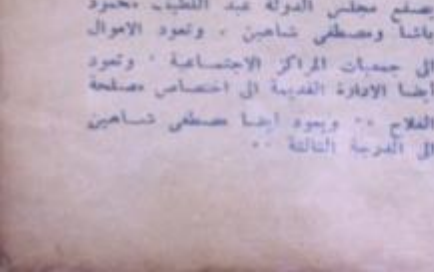 يصفع مجلس الدولة عبد اللطيف محمود
باشا ومصطفى شاهين ، وتعود الاموال
الى جمعيات المراكز الاجتماعية ٠ وتعود
ايضا الادارة القديمة الى اختصاص مصلحة
الفلاح ٠٠ ويعود ايضا مصطفى شاهين
الى الدرجة الثالثة ٠٠